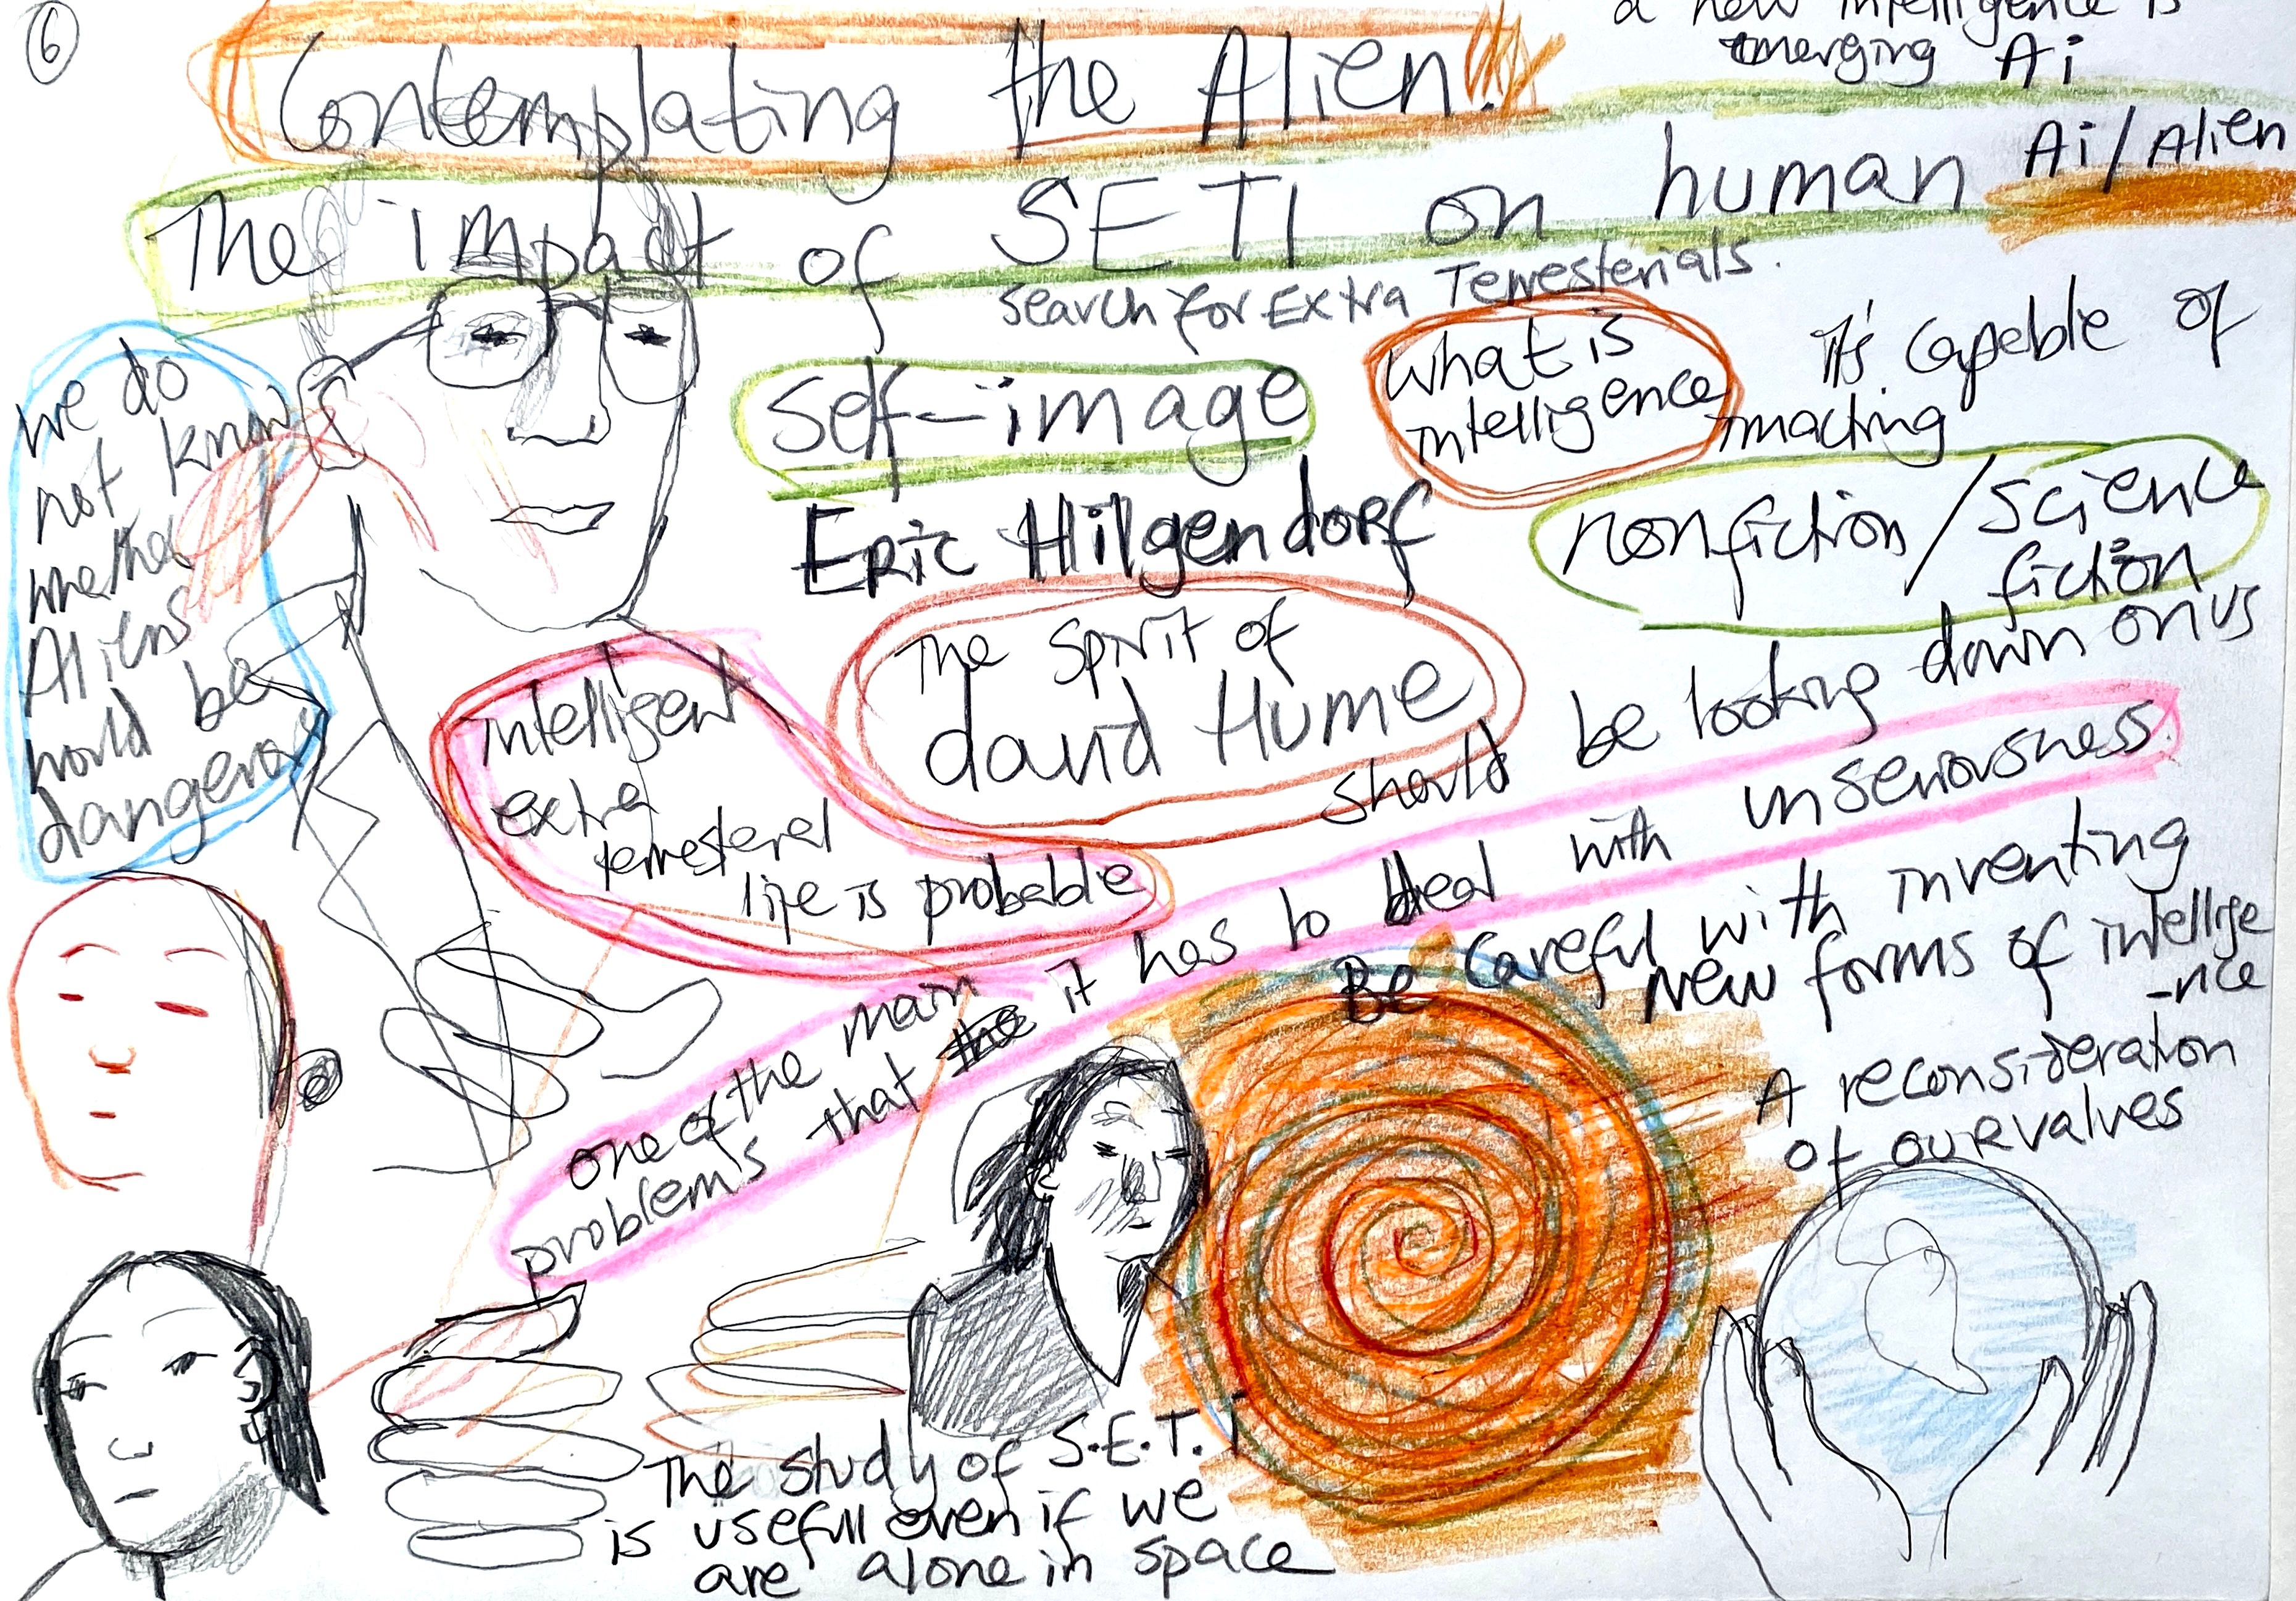 6
Contemplating the Alien.
a new intelligence is
emerging Ai
The impact of SETI on human Ai/Alien
Search for Extra Terresterials.
self-image
what is
intelligence
it's capable of
Eric Hilgendorf
nonfiction/science
fiction
we do
not know
whether
Aliens
would be
dangerous
The spirit of
david Hume
should be looking down on us
intelligent
extra
terresteral
life is probable
one of the main
problems that it has to deal with unseriousness.
Be careful with inventing
new forms of intellige
-nce
A reconsideration
of our values
The study of S.E.T.I
is usefull even if we
are alone in space